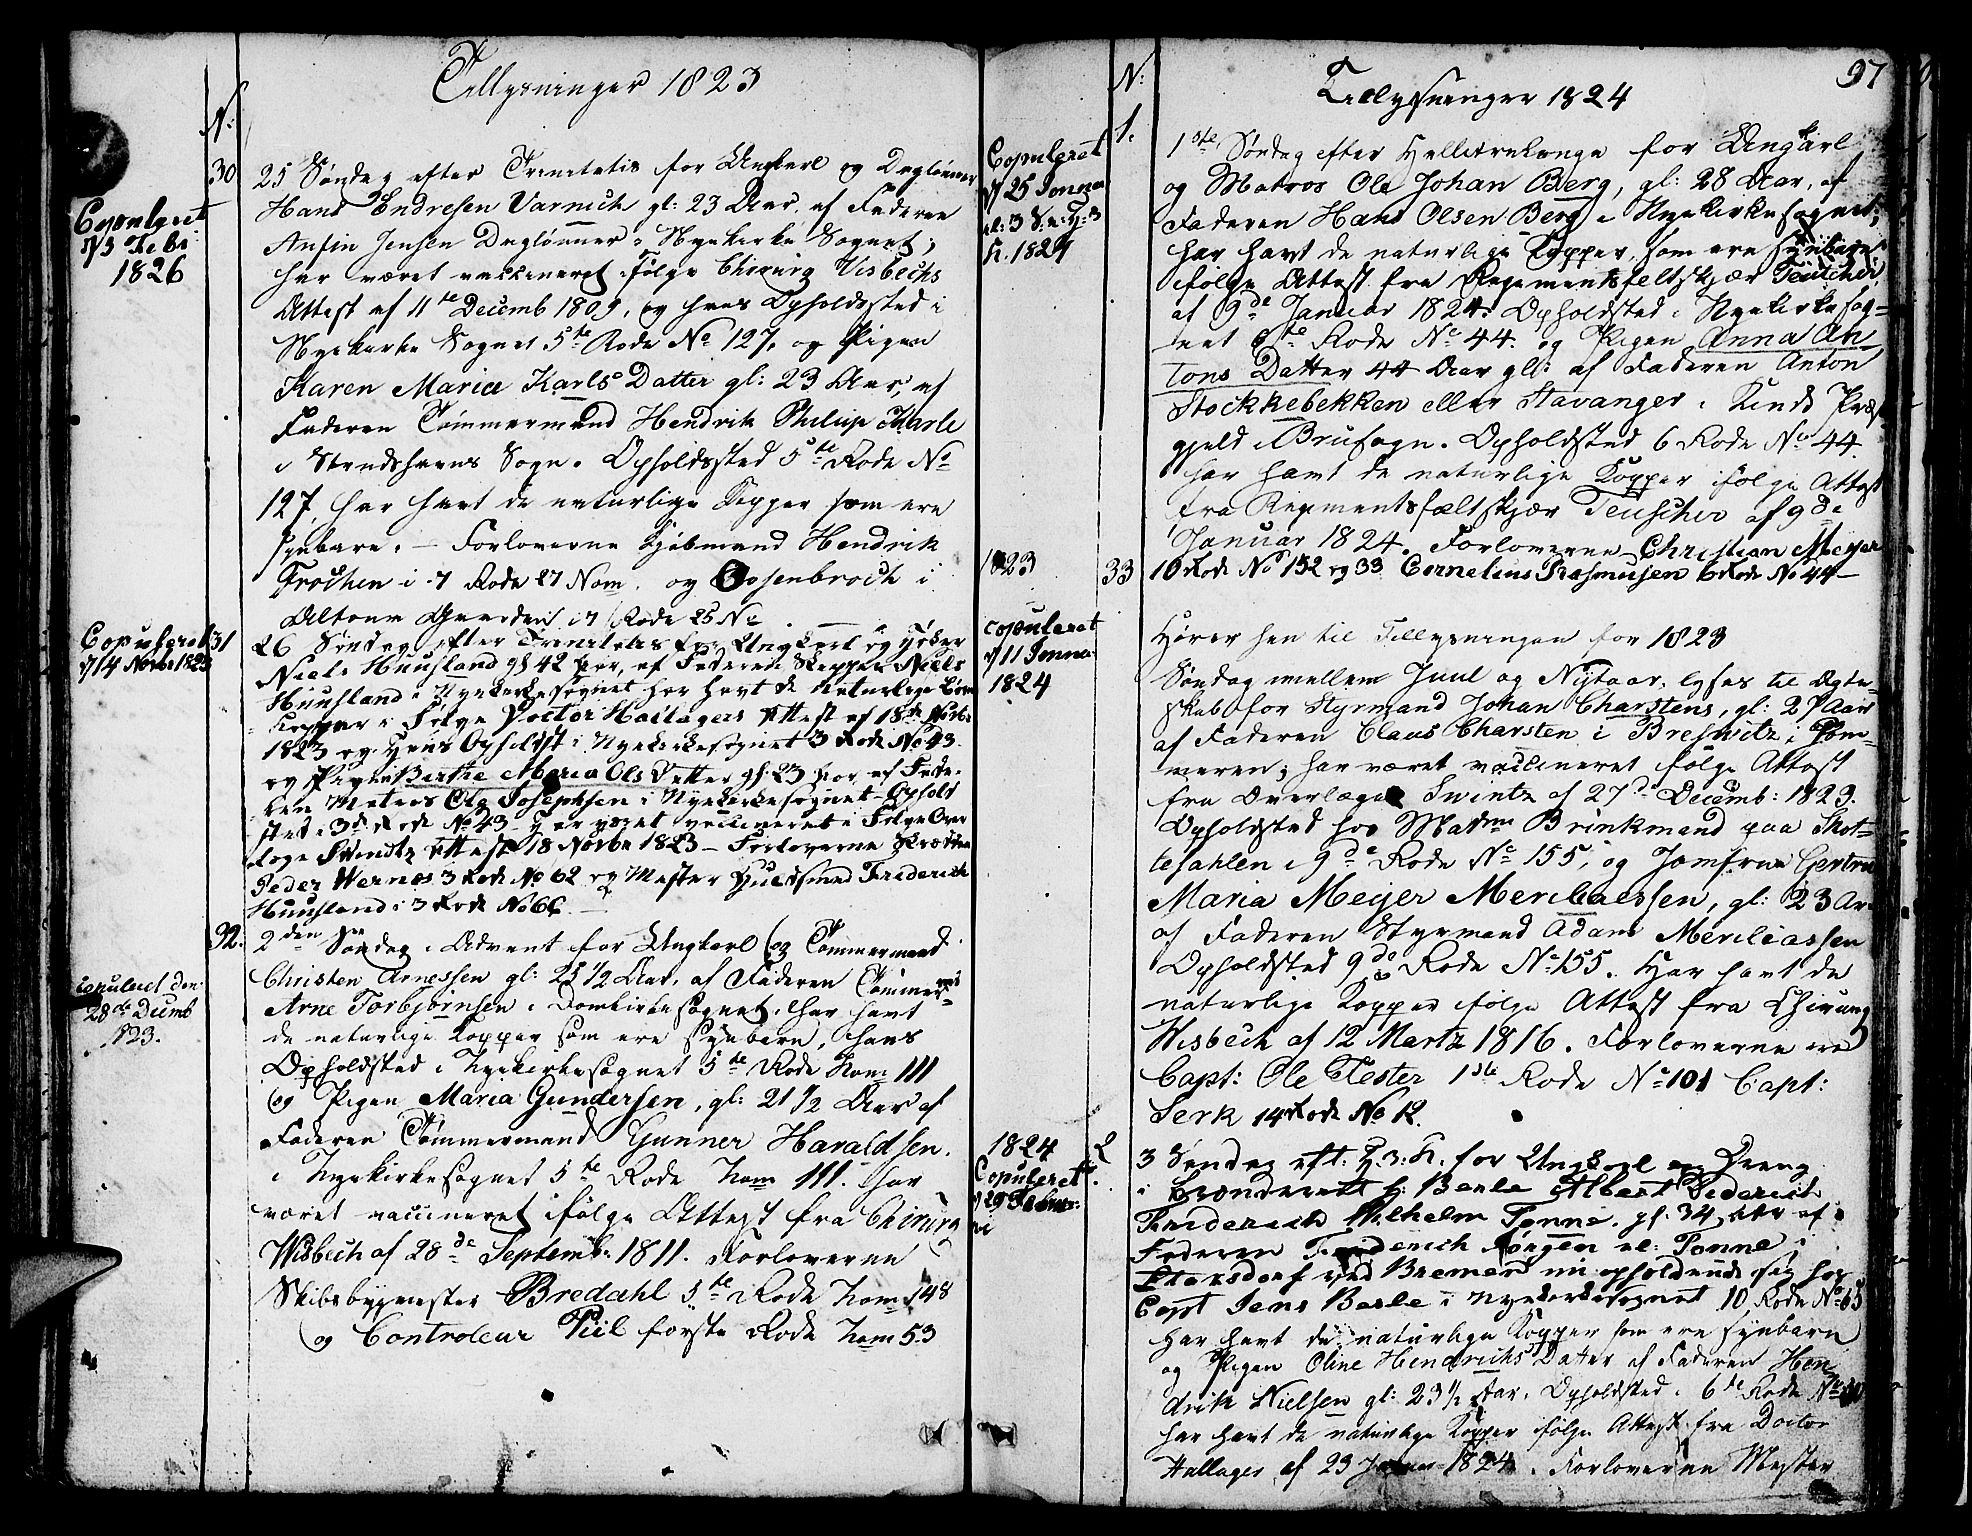 Tillysninger 1823
N:
30
Copuleret
d/3 Febr:
1826
25 Søndag efter Trinitatis for Ungkarl og Daglønner
Hans Endresen Varnich gl: 23 Aar, af Faderen
Anfin Jensen Daglønner i Nyekirke Sognet,
har været vaccineret ifølge Chirurg Visbechs
Attest af 11te Decemb 1809, og hans Opholdssted i
Nyekirke Sognet 5te Rode No 127, og Pigen
Karen Maria Karls Datter gl: 23 Aar, af
Faderen Tømmermand Hendrik Philip Karls
i Strudshavns Sogn. Opholdssted 5te Rode No
127, har havt de naturlige Kopper som ere
synbare. – Forloverne Kjøbmand Hendrik
Trochen i 7 Rode 27 Nom. og Rosenbroch i
Altona Gaarden i 7 Rode 25 No
31
Copuleret
d/14 Novbr 1823
26 Søndag efter Trinitatis for Ungkarl og
Niels Huusland gl 42 Aar, af Faderen Skipper Niels
Huusland i Nyekirkesognet har havt de naturlige
Kopper i Følge Doctor Hallagers Attest af 18de Novbr
1823 og hans Opholdst i Nyekirkesognet 3 Rode No 43
og Pigen Berthe Maria Ols Datter gl: 23 Aar af Fade-
ren Matros Ole Josephsen i Nyekirkesognet Ophold
sted i 3de Rode No 43 har været vaccineret i Følge Over
læge Svindtz Attest 18 Novbr 1823 – Forloverne
Peder Wernøs 3 Rode No 62 og Mester Guldsmed Friderich
Huusland i 3 Rode No 66
32.
copuleret den
28de Decemb
1823.
2den Søndag i Advent for Ungkarl og Tømmermand
Christen Arnessen gl: 25 1/2 Aar, af Faderen Tømmermand
Arne Torbjørnsen i Domkirkesognet, har havt
de naturlige Kopper som ere synbare, hans
Opholdsted i Nyekirkesognet 5te Rode Nom 111
og Pigen Maria Gundersen, gl: 21 1/2 Aar af
Faderen Tømmermand Gunner Haraldsen.
i Nyekirkesognet 5te Rode Nom 111. har
været vaccineret ifølge Attest fra Chirurg
Wisbech af 28de Septemb: 1811. Forloverne
Skibsbygmester Bredahl 5te Rode Nom 148
og Controleur Piil første Rode Nom 53
97
Tillysninger 1824
N:
1.
Copuleret
d/ 25 Janua
el: 3 S: e: H: 3
K. 1824
1ste Søndag efter Hellitrekonge for Ungkarl
og Matros Ole Johan Berg, gl: 28 Aar, af
Faderen Hans Olsen Berg i Nyekirkesognet,
har havt de naturlige Kopper, som ere synbare
ifølge Attest fra Regimentsfeltskjær Teuscher
af 9de Januar 1824. Opholdsted i Nyekirkesog-
net 6te Rode No 44. og Pigen Anna An
tons Datter 44 Aar gl: af Faderen Anton
Stockkebekken eller Stavanger i Kinds Præs
gjeld i Brusogn. Opholdsted 6 Rode No 44.
har havt de naturlige Kopper ifølge Attest
fra Regimentsfæltskjær Teuscher af 9de
Januar 1824. Forloverne Christian Meyer
10 Rode No 152 og 33 Cornelius Rasmusen 6 Rode No 44 –
1823
33
copuleret
d/ 11 Janua
1824
Hører hen til Tillysningen for 1823
Søndag mellem Juul og Nytaar, lyses til Ægte-
skab for Styrmand Johan Charstens, gl: 27 Aar
af Faderen Claus Charsten i Breswitz i Pom-
meren; har været vaccineret ifølge Attest
fra Overlæge Swintz af 27de Decemb: 1823.
Opholdsted hos Madme Brinkmand paa Skot-
tesahlen i 9de Rode No 155, og Jomfrue Gertrue
Maria Meyer Meriliaessen, gl: 23 Aar
af Faderen Styrmand Adam Meriliassen
Opholdsted 9de Rode No 155. Har havt de
naturlige Kopper ifølge Attest fra Chirurg
Wisbech af 12 Martz 1816. Forloverne ere
Capt: Ole Tester 1ste Rode No 101 Capt:
Serk 14 Rode No 12.
1824
2.
Copuleret
d/ 29 Febru:
3 Søndag eft: H. 3: K. for Ungkarl og Dreng
i Brænderiet h: Barle Albert Diderich
Friderich Wilhelm Tønne. gl: 34 Aar af
Faderen Friederich Jørgen Tonne i
ved Bremen nu opholdende sig hos
Capt Jens Barle i Nyekirkesognet 10 Rode No 65
har havt de naturlige Kopper som ere synbare
og Pigen Oline Hendrichs Datter af Faderen Hen
drik Nielsen gl: 23 1/2 Aar. Opholdsted i 6te Rode No
har havt de naturlige Kopper ifølge Attest fra Doctor
Hallager af 23 Januar 1824. Forloverne Mester